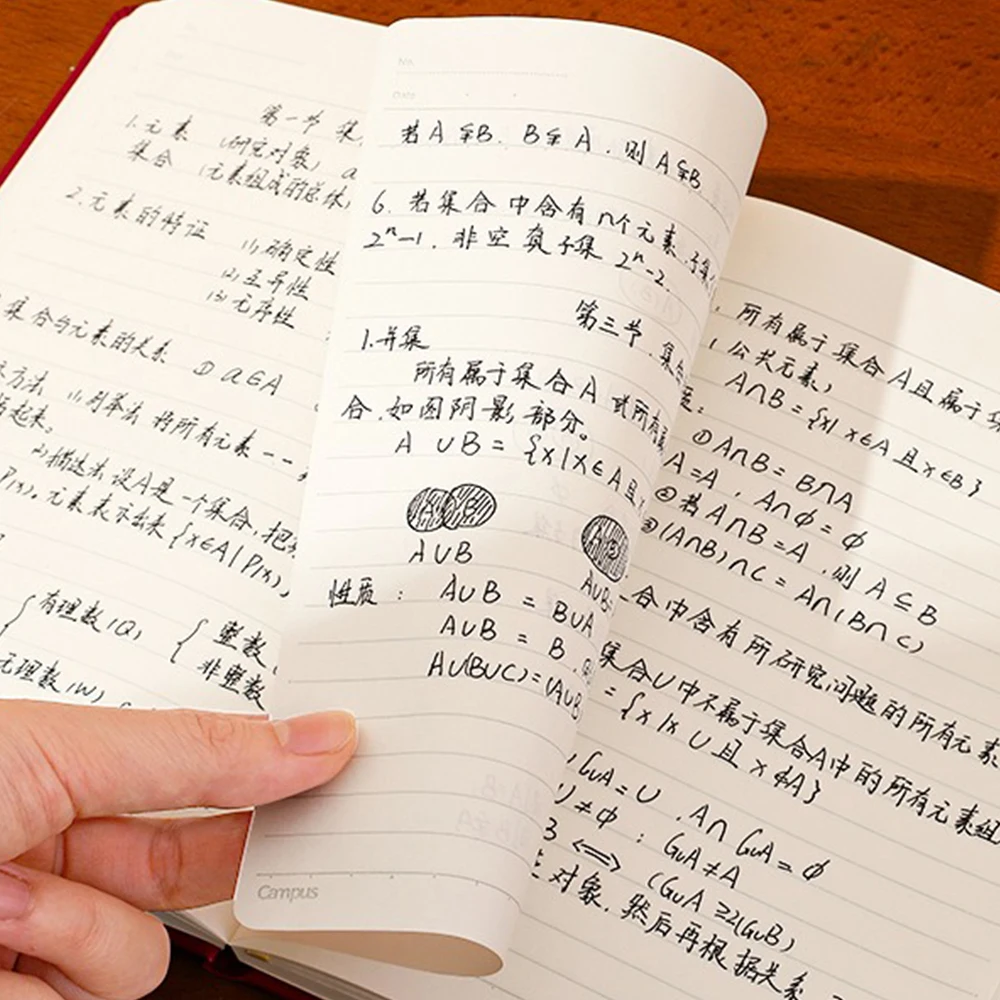 第一节 集
1.元素 (研究对象) a
集合 (元素组成的总体)
2.元素的特征 (1)确定性
(2)互异性
(3)无序性
集合与元素的关系 ① a∈A
方法 (1)列举法 将所有元素--
括起来。
(2)描述法 设A是一个集合,把
P(x)。元素表示出来 {x∈A|P(x)},
有理数(Q) { 整数
非整数
无理数(W)
No.
Date
若A⊊B. B⊊A. 则A⊊B
6. 若集合中含有n个元素,子集
2ⁿ-1. 非空真子集 2ⁿ-2.
第三节.集合
1.并集
所有属于集合A 或所有
合.如图阴影部分。
A∪B={x|x∈A且
A∪B
A∪B=
性质: A∪B = B∪A
A∪B = B.
A∪(B∪C)=(A∪B
Campus
所有属于集合A且属于集
(公共元素)
A∩B={x|x∈A且x∈B}
①A∩B=B∩A
A=A, A∩ϕ=ϕ
②若A∩B=A,则A⊆B
③(A∩B)∩C=A∩(B∩C)
合中含有所研究问题的所有元素
集合U中不属于集合A中的所有元素组
={x|x U且x∉A}
CuA=U, A∩CuA=ϕ
U≠ϕ: CuA≠A
B ⟺ (CuA⊇(CuB)
对象.然后再根据关系